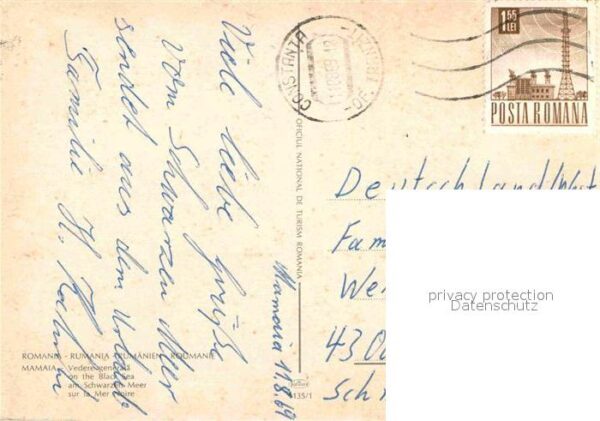 Viele liebe Grüße
vom Schwarzen Meer
sendet aus dem Urlaub
Familie H.
Mamaia 11.8.69
ROMANIA - RUMANIA - RUMÄNIEN - ROUMANIE
MAMAIA Vedere generală
on the Black Sea
am Schwarzen Meer
sur la Mer Noire
OFICIUL NATIONAL DE TURISM ROMANIA
4135/1
CONSTANTA
1,55
LEI
POSTA ROMANA
Deutschland/West
Fam
We
43
Sch
privacy protection
Datenschutz